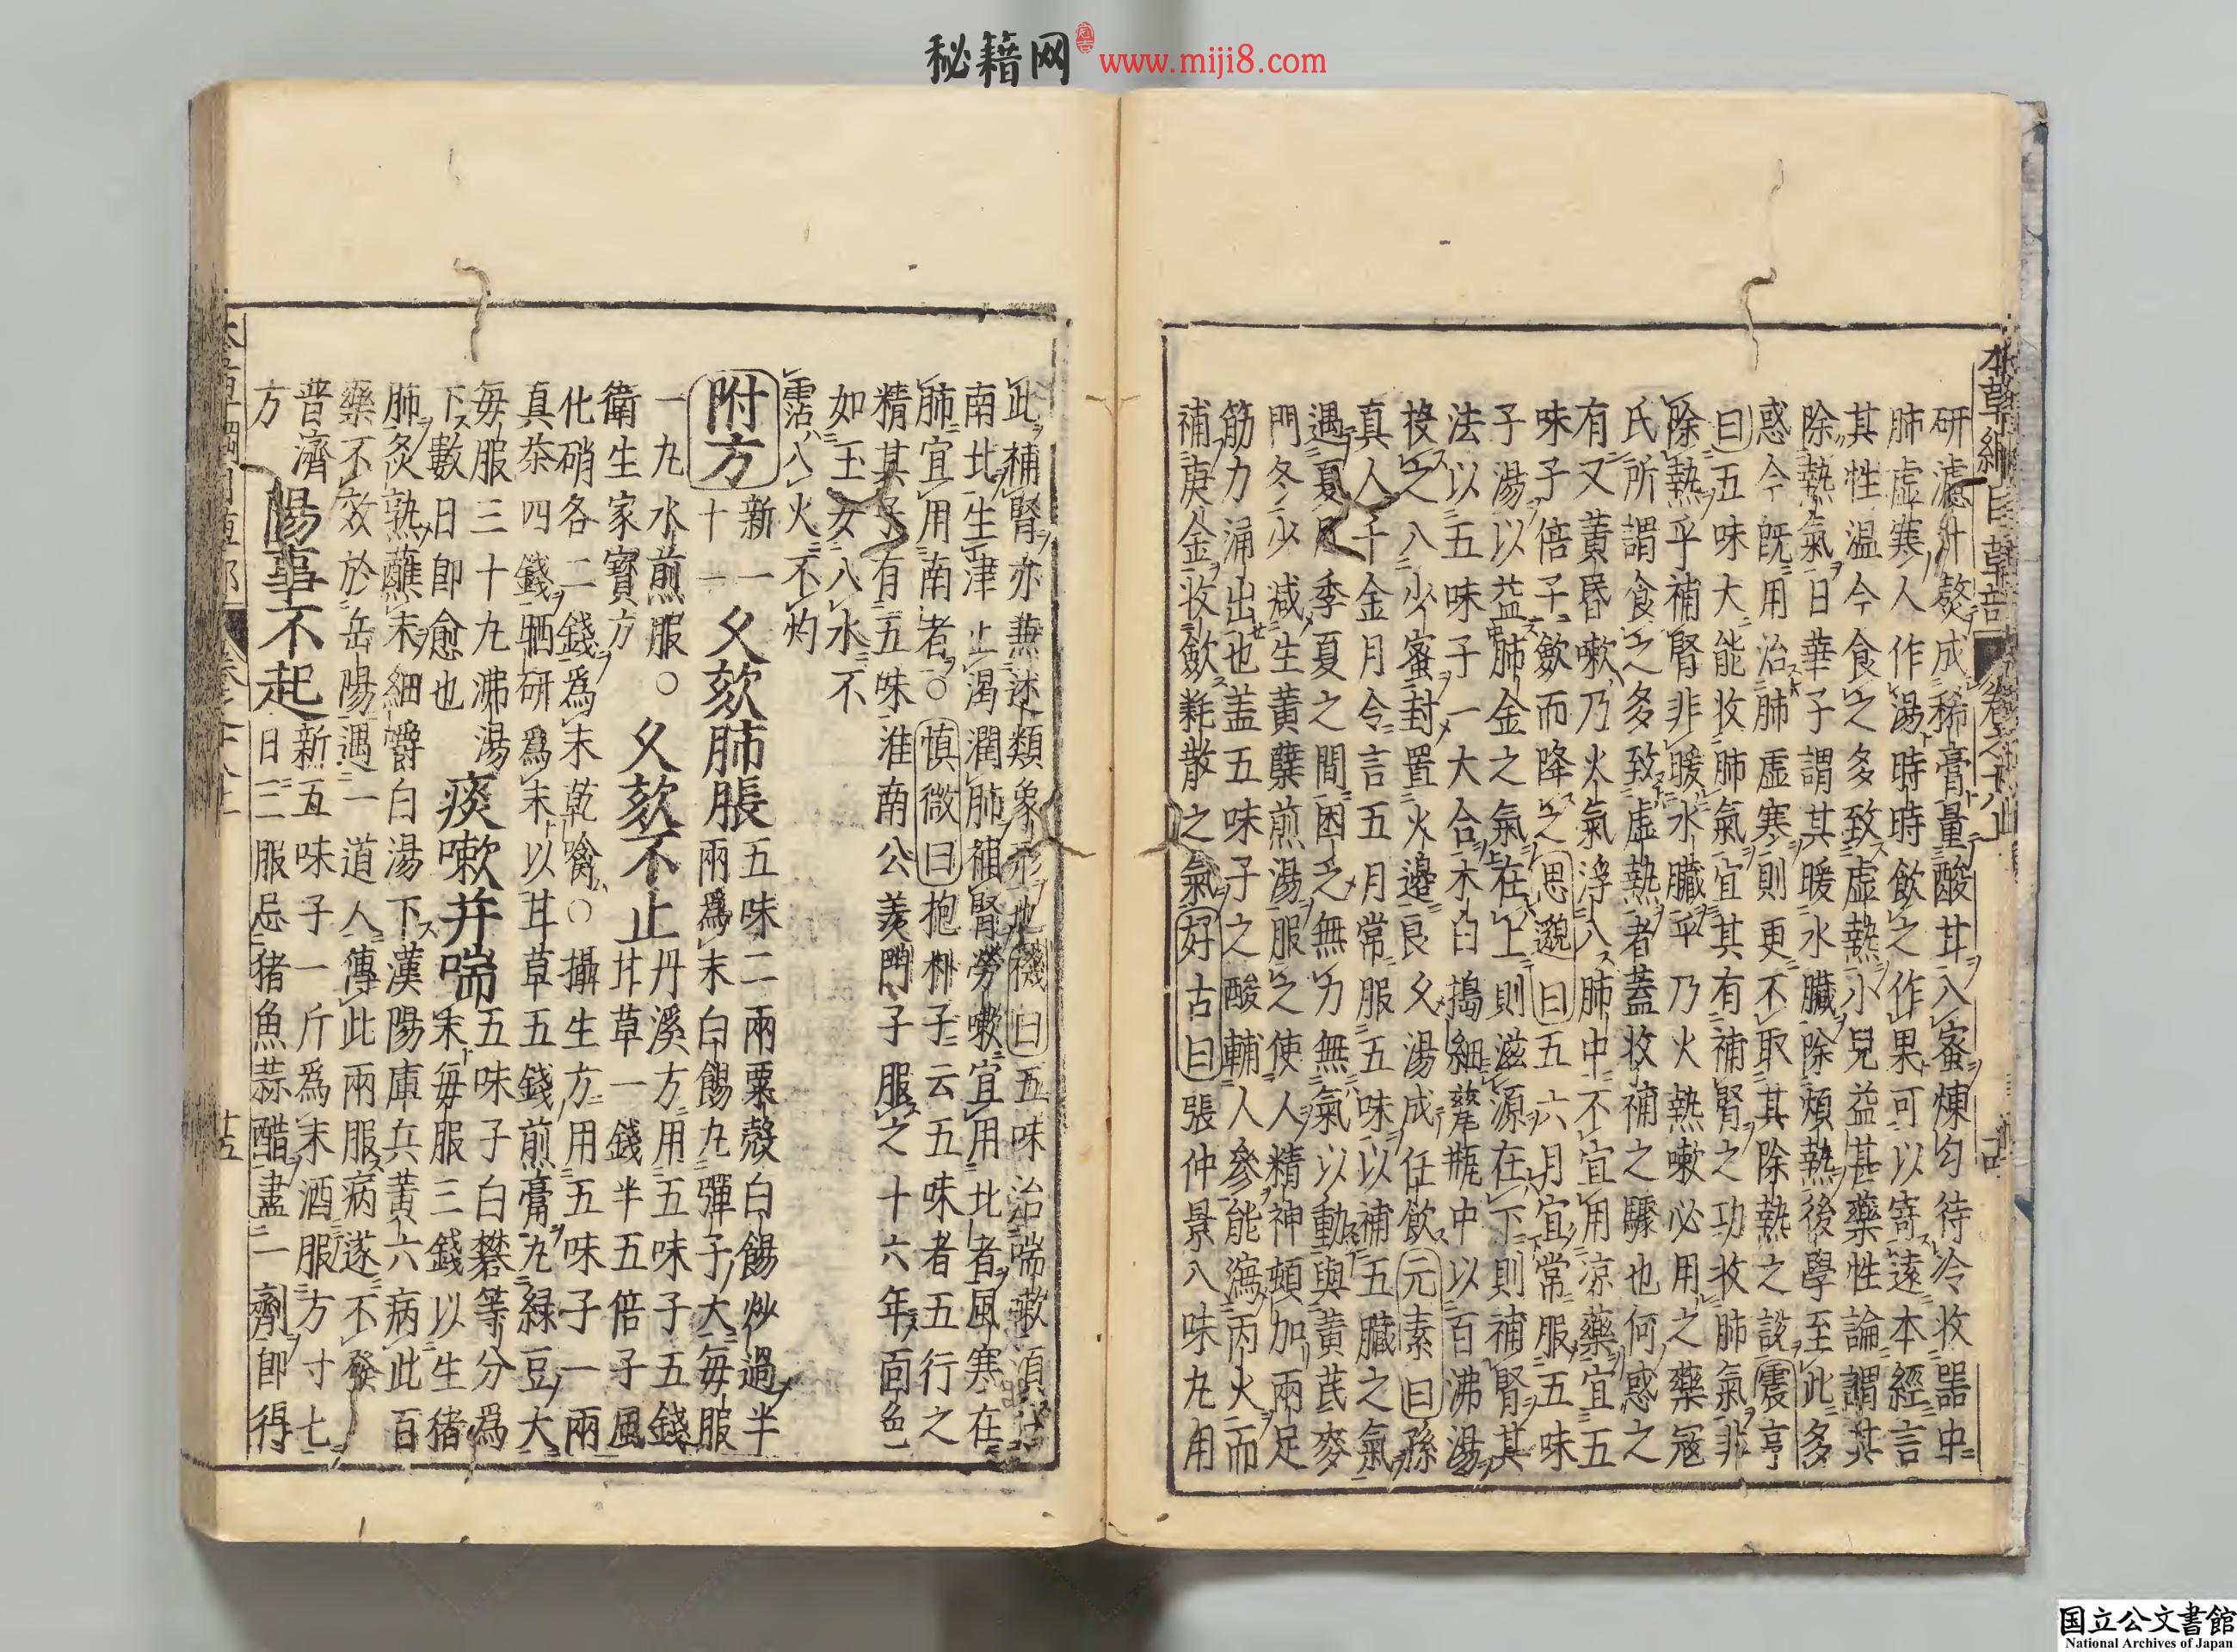 秘籍网 www.miji8.com
本草綱目草部 卷之十八上
研濾汁熬成稀膏量酸甘入蜜煉勻待冷收器中
肺虛寒人作湯時時飲之作果可以寄遠本經言
其性温今食之多致虛熱小兒益甚藥性論謂其
除熱氣日華子謂其暖水臟除煩熱後學至此多
惑今既用治肺虛寒則更不取其除熱之說震亨
曰五味大能收肺氣宜其有補腎之功收肺氣非
除熱乎補腎非暖水臟乎乃火熱嗽必用之藥寇
氏所謂食之多致虛熱者蓋收補之驟也何惑之
有又黃昏嗽乃火氣浮入肺中不宜用涼藥宜五
味子倍子歛而降之思邈曰五六月宜常服五味
子湯以益肺金之氣在上則滋源在下則補腎其
法以五味子一大合木臼搗細瓷瓶中以百沸湯
投之入少蜜封置火邊良久湯成任飲元素曰孫
真人千金月令言五月常服五味以補五臟之氣
遇夏月季夏之間困乏無力無氣以動與黃芪麥
門冬少減生黃蘗煎湯服之使人精神頓加兩足
筋力涌出也蓋五味子之酸輔人參能瀉丙火而
補庚金收斂耗散之氣好古曰張仲景八味丸用
此補腎亦兼述類象形也機曰五味治喘嗽須分
南北生津止渴潤肺補腎勞嗽宜用北者風寒在
肺宜用南者○慎微曰抱朴子云五味者五行之
精其子有五味淮南公羨門子服之十六年面色
如玉女入水不
霑入火不灼
附方 新一 十一 久欬肺脹 五味二兩粟殼白餳炒過半
兩爲末白餳丸彈子大每服
一丸水煎服○ 久欬不止 丹溪方用五味子五錢
甘草一錢半五倍子風
衛生家寶方
化硝各二錢爲末乾噙○攝生方用五味子一兩
真茶四錢晒研爲末以甘草五錢煎膏丸綠豆大
每服三十丸沸湯
下數日即愈也 痰嗽并喘 五味子白礬等分爲
末每服三錢以生猪
肺炙熟蘸末細嚼白湯下漢陽庫兵黃六病此百
藥不效於岳陽遇一道人傳此兩服病遂不發
普濟
方 陽事不起 新五味子一斤爲末酒服方寸七
日三服忌猪魚蒜醋盡一劑即得
国立公文書館
National Archives of Japan